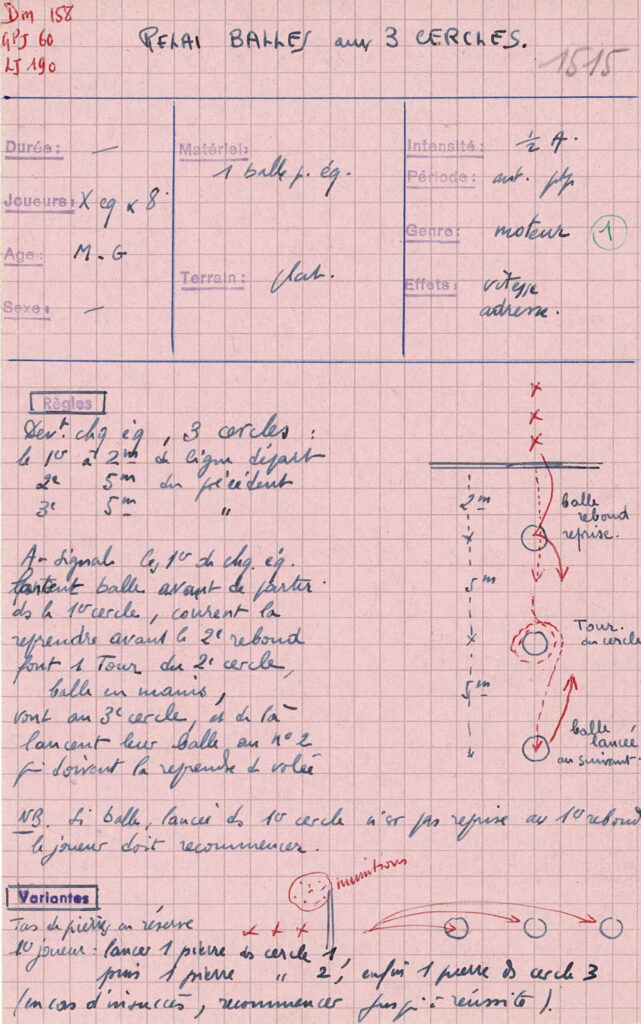 Dm 158
GPJ 60
LJ 190
RELAI BALLES aux 3 CERCLES.
1515
Durée : —
Joueurs : X eq x 8
Age : M. G
Sexe : —
Matériel :
1 balle p. ég.
Terrain : plat.
Intensité : ½ A.
Période : aut. ptp
Genre : moteur 1
Effets : vitesse
adresse.
Règles
Devt. chq ég, 3 cercles :
le 1er à 2m de ligne départ
2e 5m du précédent
3e 5m "
A - Signal les 1er de chq. ég.
lancent balle avant de partir
ds le 1er cercle, courent la
reprendre avant le 2e rebond
font 1 Tour du 2e cercle,
balle en mains,
vont au 3e cercle, et de là
lancent leur balle au n°2
qui doivent la reprendre de volée
2m
5m
5m
balle
rebond
reprise.
Tour
du cercle
balle
lancée
au suivant.
NB. Si balle, lancée ds 1er cercle n'est pas reprise au 1er rebond
le joueur doit recommencer.
Variantes
munitions
Tas de pierres en réserve
1er joueur : lancer 1 pierre ds cercle 1,
puis 1 pierre " 2, enfin 1 pierre ds cercle 3
(en cas d'insuccès, recommencer jusqu'à réussite).